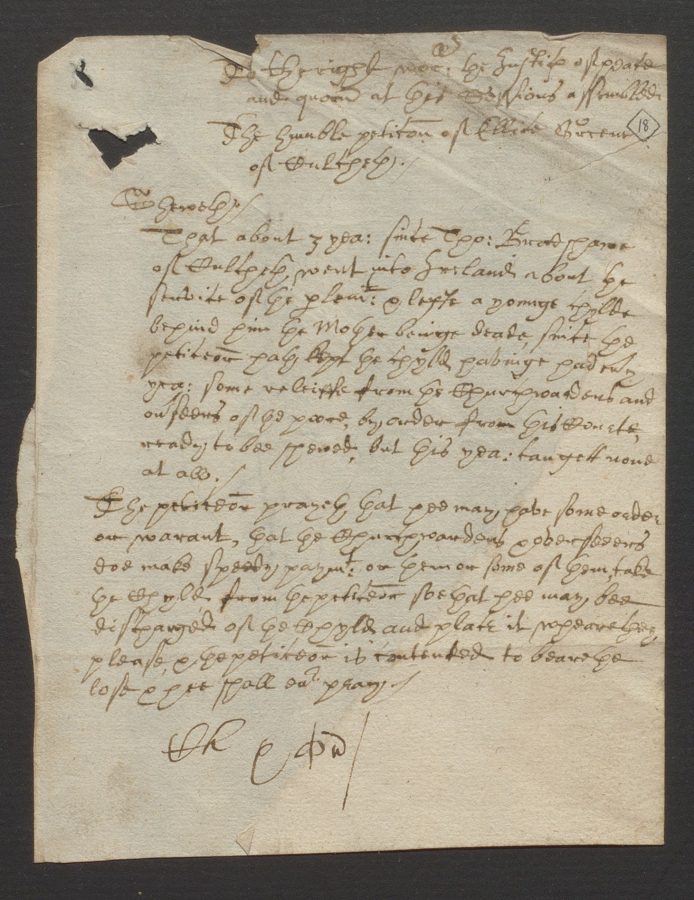 To the right wor: the Justic of peace
and quorū at this Sessions assembled
The humble peticōn of Ellice Greene
of Culcheth.
18
Sheweth
That about 3 yea: since Tho: Bradshawe
of Culcheth, went into Ireland about the
service of the & leffte a younge chylde
behind him the Mother beinge deade, since the
peticōnr hath kept the chyld, havinge had ev'y
yea: some releiffe from the Churchwardens and
ou'seers of the poore, by order from this Courte,
ready to bee shewed, but this yea: can gett none
at all.
The peticōnr prayeth that shee may have some order
or warant, that the Churchwardens & overseeers
doe make speedy paymt: or them or some of them, take
the Chyld from the peticōnr soe that shee may bee
discharged of the Chyld and place it wheare they
please, & the peticōnr is contented to beare the
lose & shee shall eu' pray.